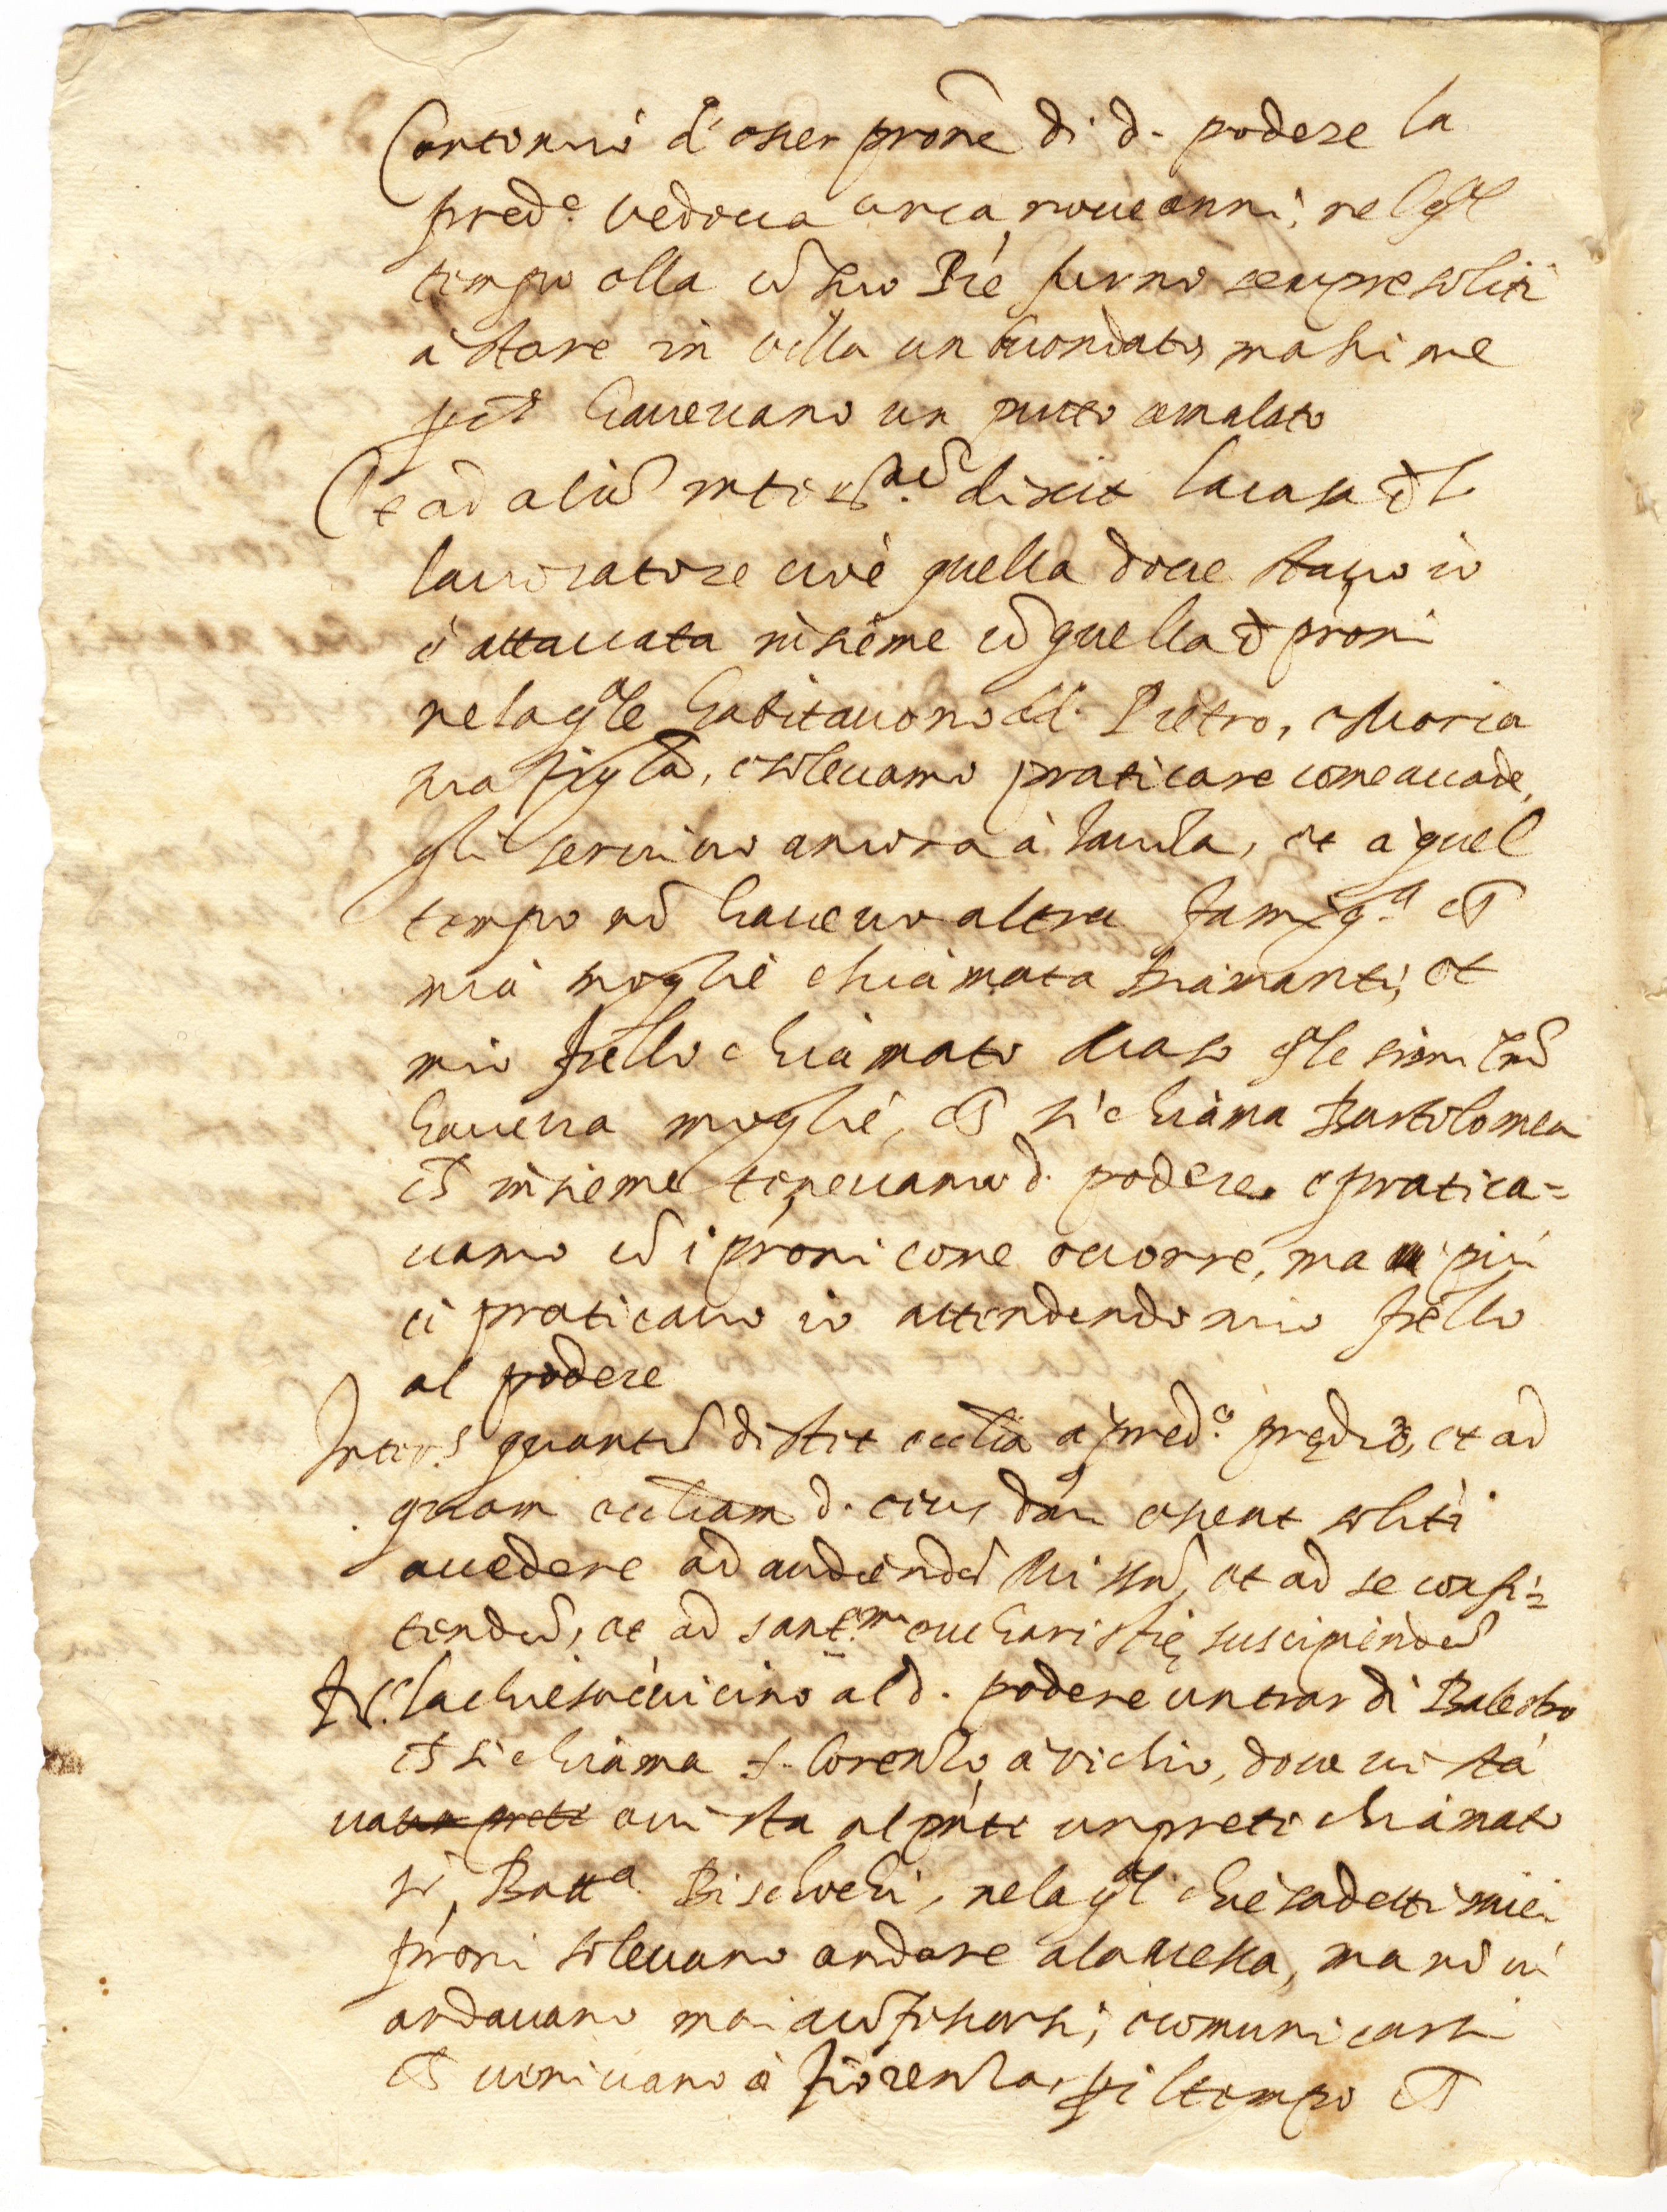 Continuò d'esser prone di d. podere la
pred.a vedoua circa noue anni, nel ql
tempo ella cō suo Pre furno sempre soliti
à stare in uilla un mondato massime
pche haueuano un putto amalato
Et ad aliud interr.m dixit la casa del
lauoratore cioè quella doue stauo io
è attaccata insieme cō quella d proni
nela qle habitauono dd. Pietro, e Maria
sua figla, e soleuamo praticare come accade,
gli seruiuo ancora à tauola, et à quel
tempo nō haueuo altra famig.a che
mia moglie chiamata Diamanti, et
mio frello chiamato Maso qle simil.
haueua moglie, che si chiama Bartolomea
che insieme teneuamo d. podere, e pratica=
uamo cō i proni come occorre, ma più
ci praticauo io attendendo mio frello
al podere
Interr.s quantū distet ecclia a pred.o predio, et ad
quam eccliam d. eius dni essent soliti
accedere ad audiendū Missā, et ad se confi=
tendū, et ad sant.m eucharistię suscipiendū
R. la chiesa è vicino al d. podere un trar di Balestro
che si chiama S. Lorenzo à vichio, doue ui stà
ua un prete oui sta al pnte un prete chiamato
sr. Batt.a Bischochi, nela ql chiesa detti miei
proni soleuano andare ala Messa, ma nō ui
andauano mai à cōfessarsi, e comunicarsi
che ueniuano à Fiorenza, p il tempo che